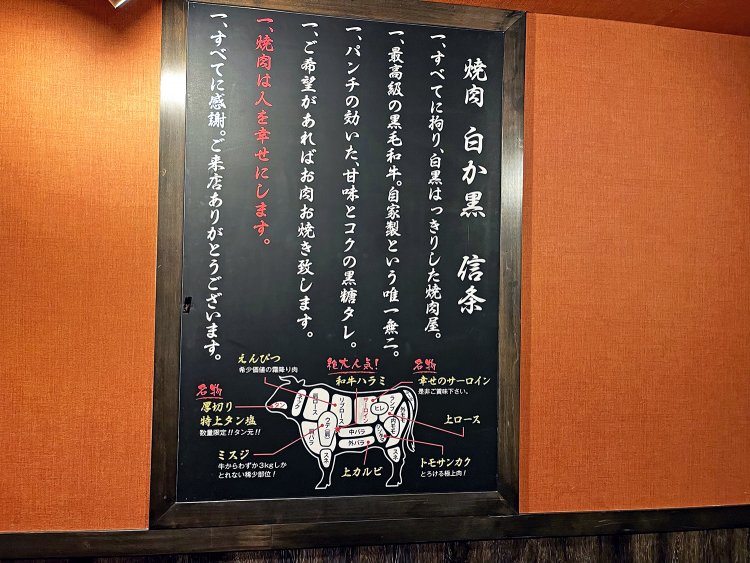 焼肉 白か黒 信条
一、すべてに拘り、白黒はっきりした焼肉屋。
一、最高級の黒毛和牛。自家製という唯一無二。
一、パンチの効いた、甘味とコクの黒糖タレ。
一、ご希望があればお肉お焼き致します。
一、焼肉は人を幸せにします。
一、すべてに感謝。ご来店ありがとうございます。
えんぴつ
希少価値の霜降り肉
絶大人気!
和牛ハラミ
名物
幸せのサーロイン
是非ご賞味下さい。
名物
厚切り
特上タン塩
数量限定!!タン元!!
上ロース
ミスジ
牛からわずか3kgしか
とれない稀少部位!
上カルビ
トモサンカク
とろける極上肉!
タン
ネック
肩ロース
リブロース
サーロイン
ヒレ
ランプ
ウデ(肩)
肩バラ
中バラ
外バラ
スネ
スネ